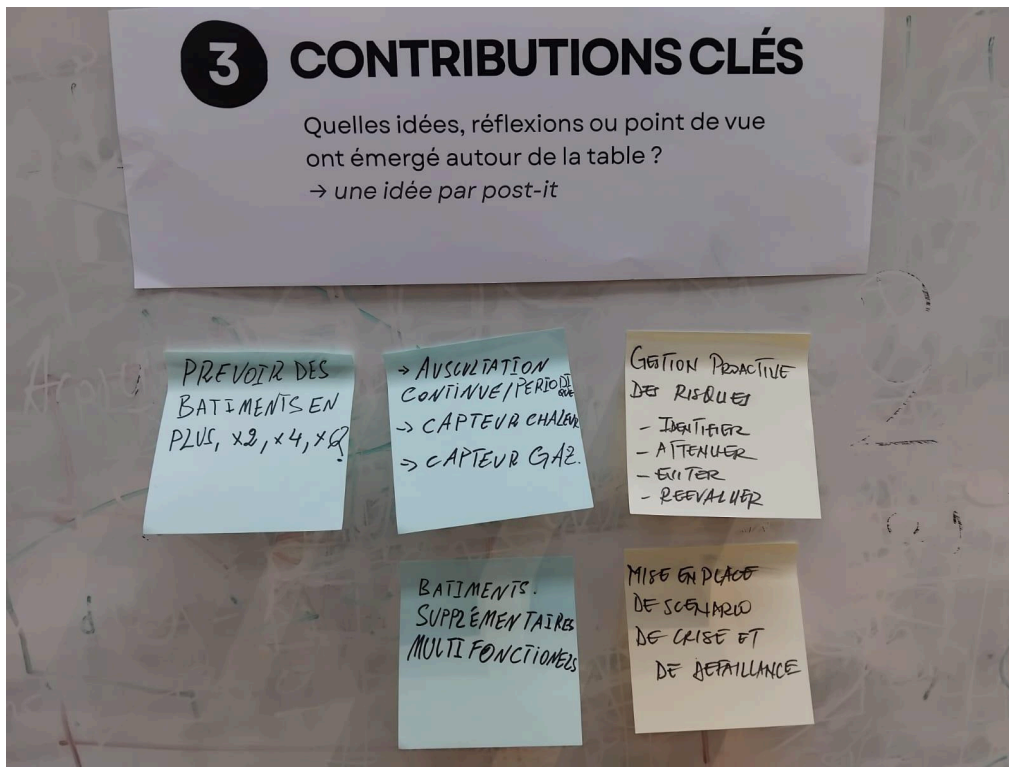 3 CONTRIBUTIONS CLÉS
Quelles idées, réflexions ou point de vue
ont émergé autour de la table ?
→ une idée par post-it
PREVOIR DES
BATIMENTS EN
PLUS, x2, x4, x
→ AUSCULTATION
CONTINUE/PERIODIQUE
→ CAPTEUR CHALEUR
→ CAPTEUR GAZ.
GESTION PROACTIVE
DES RISQUES
- IDENTIFIER
- ATTENUER
- EVITER
- REEVALUER
BATIMENTS.
SUPPLÉMENTAIRES
MULTI FONCTIONELS
MISE EN PLACE
DE SCENARIO
DE CRISE ET
DE DEFAILLANCE